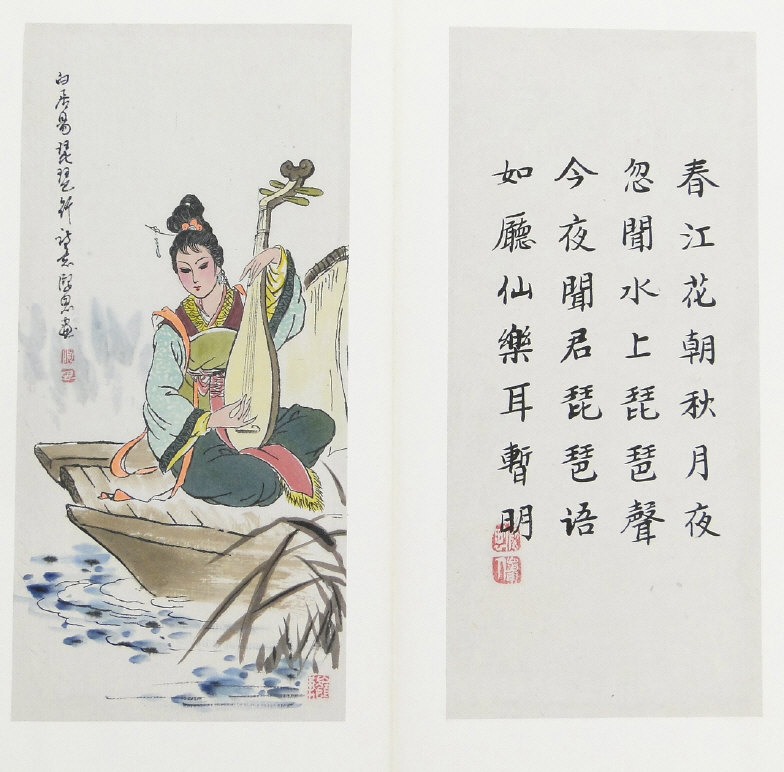 白居易琵琶行诗意
春江花朝秋月夜
忽聞水上琵琶聲
今夜聞君琵琶语
如廳仙樂耳暫明